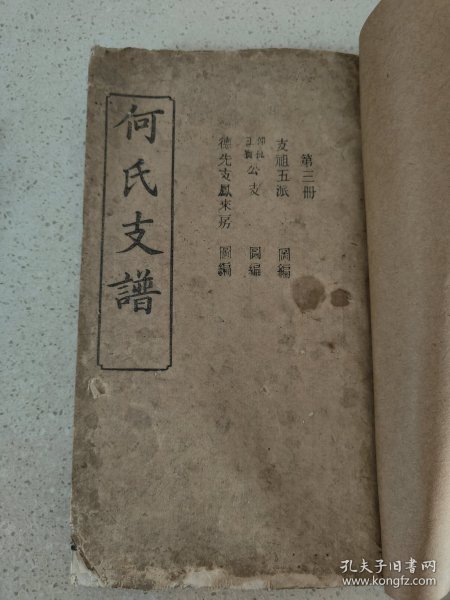 第三冊
支祖五派 圖編
公支 圖編
德先支鳳來房 圖編
何氏支譜
孔夫子旧书网
www.kongfz.com